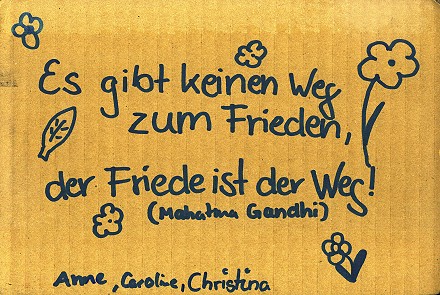 Es gibt keinen Weg
zum Frieden,
der Friede ist der Weg!
(Mahatma Gandhi)
Anne, Caroline, Christina